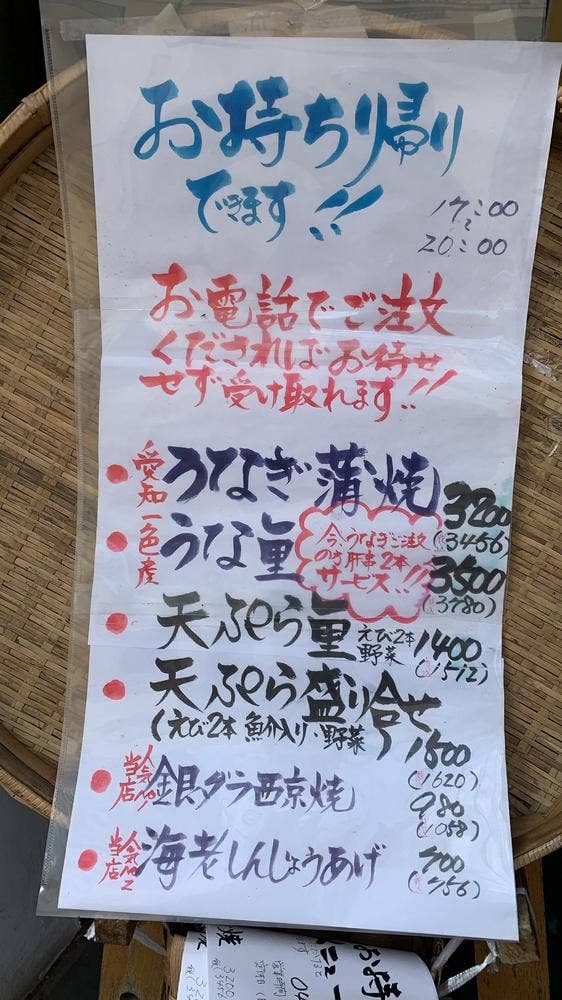 お持ち帰り
できます!!
17:00
〜
20:00
お電話でご注文
くださればお待せ
せず受け取れます!!
愛知一色産
うなぎ蒲焼
3200
(税3456)
うな重
3500
(3780)
今、うなぎご注文
の方肝串2本
サービス!!
天ぷら重 えび2本 野菜
1400
(1512)
天ぷら盛り合せ
(えび2本 魚介入り・野菜)
1500
(税1620)
当店人気No.1
銀ダラ西京焼
980
(1058)
当店人気No.2
海老しんじょうあげ
700
(756)